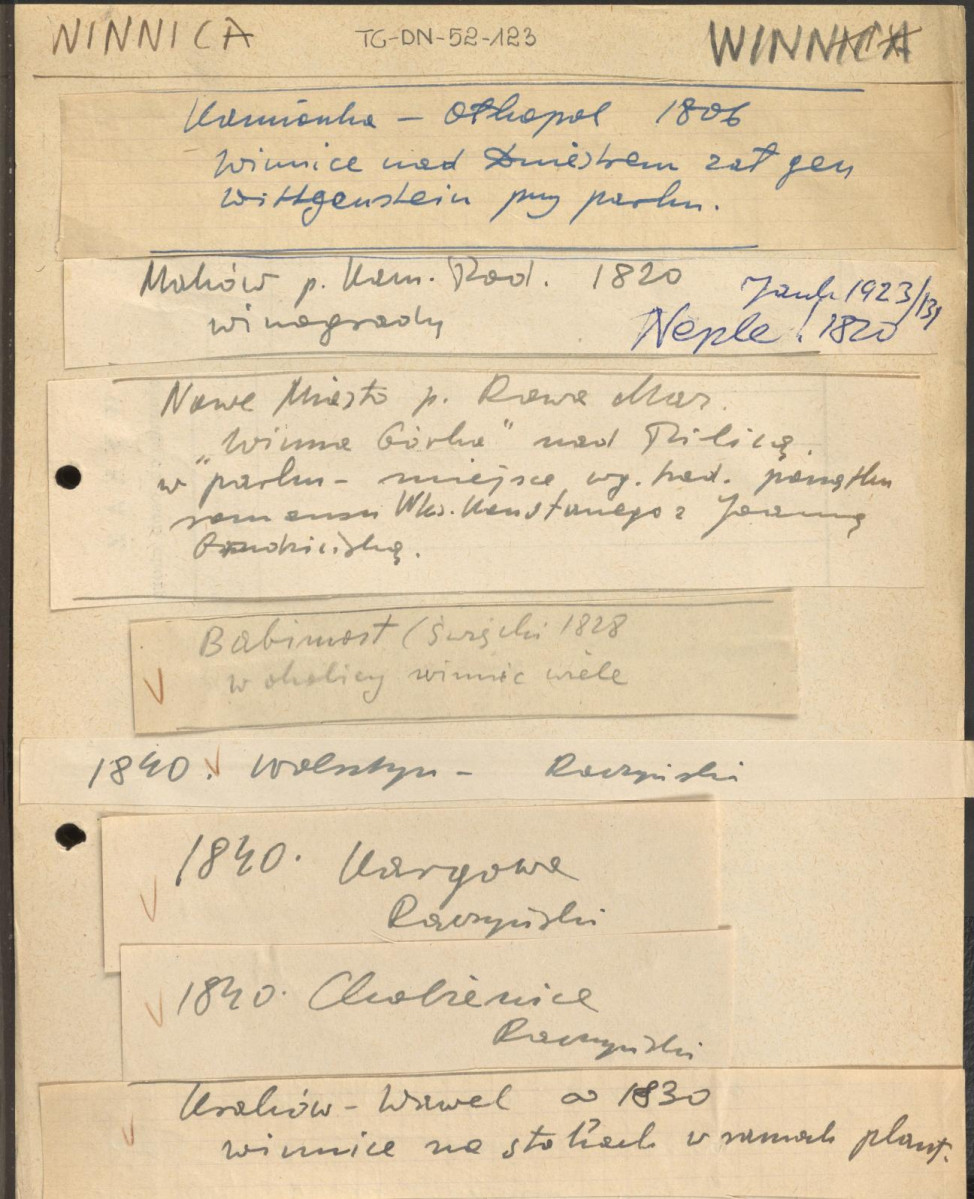 WINNICA TG-DN-52-123 WINNICA
Kamionka – Olhopol 1806
Winnice nad Dniestrem zał gen
Wittgenstein przy parku.
Maków p. Kam. Pod. 1820
winogrady
Jank 1923/131
Neple 1820
Nowe Miasto p. Rawa Maz.
„Winna Górka" nad Pilicą
w parku – miejsce wg. trad. początku
romansu Wks. Konstantego z Joanną
Grudzińską.
Babimost (Święcki 1828
w okolicy winnic wiele
1840. Wolsztyn – Raczyński
1840. Kargowa
Raczyński
1840. Chobienice
Raczyński
Kraków – Wawel ∞ 1830
winnice na stokach w ramach plant.